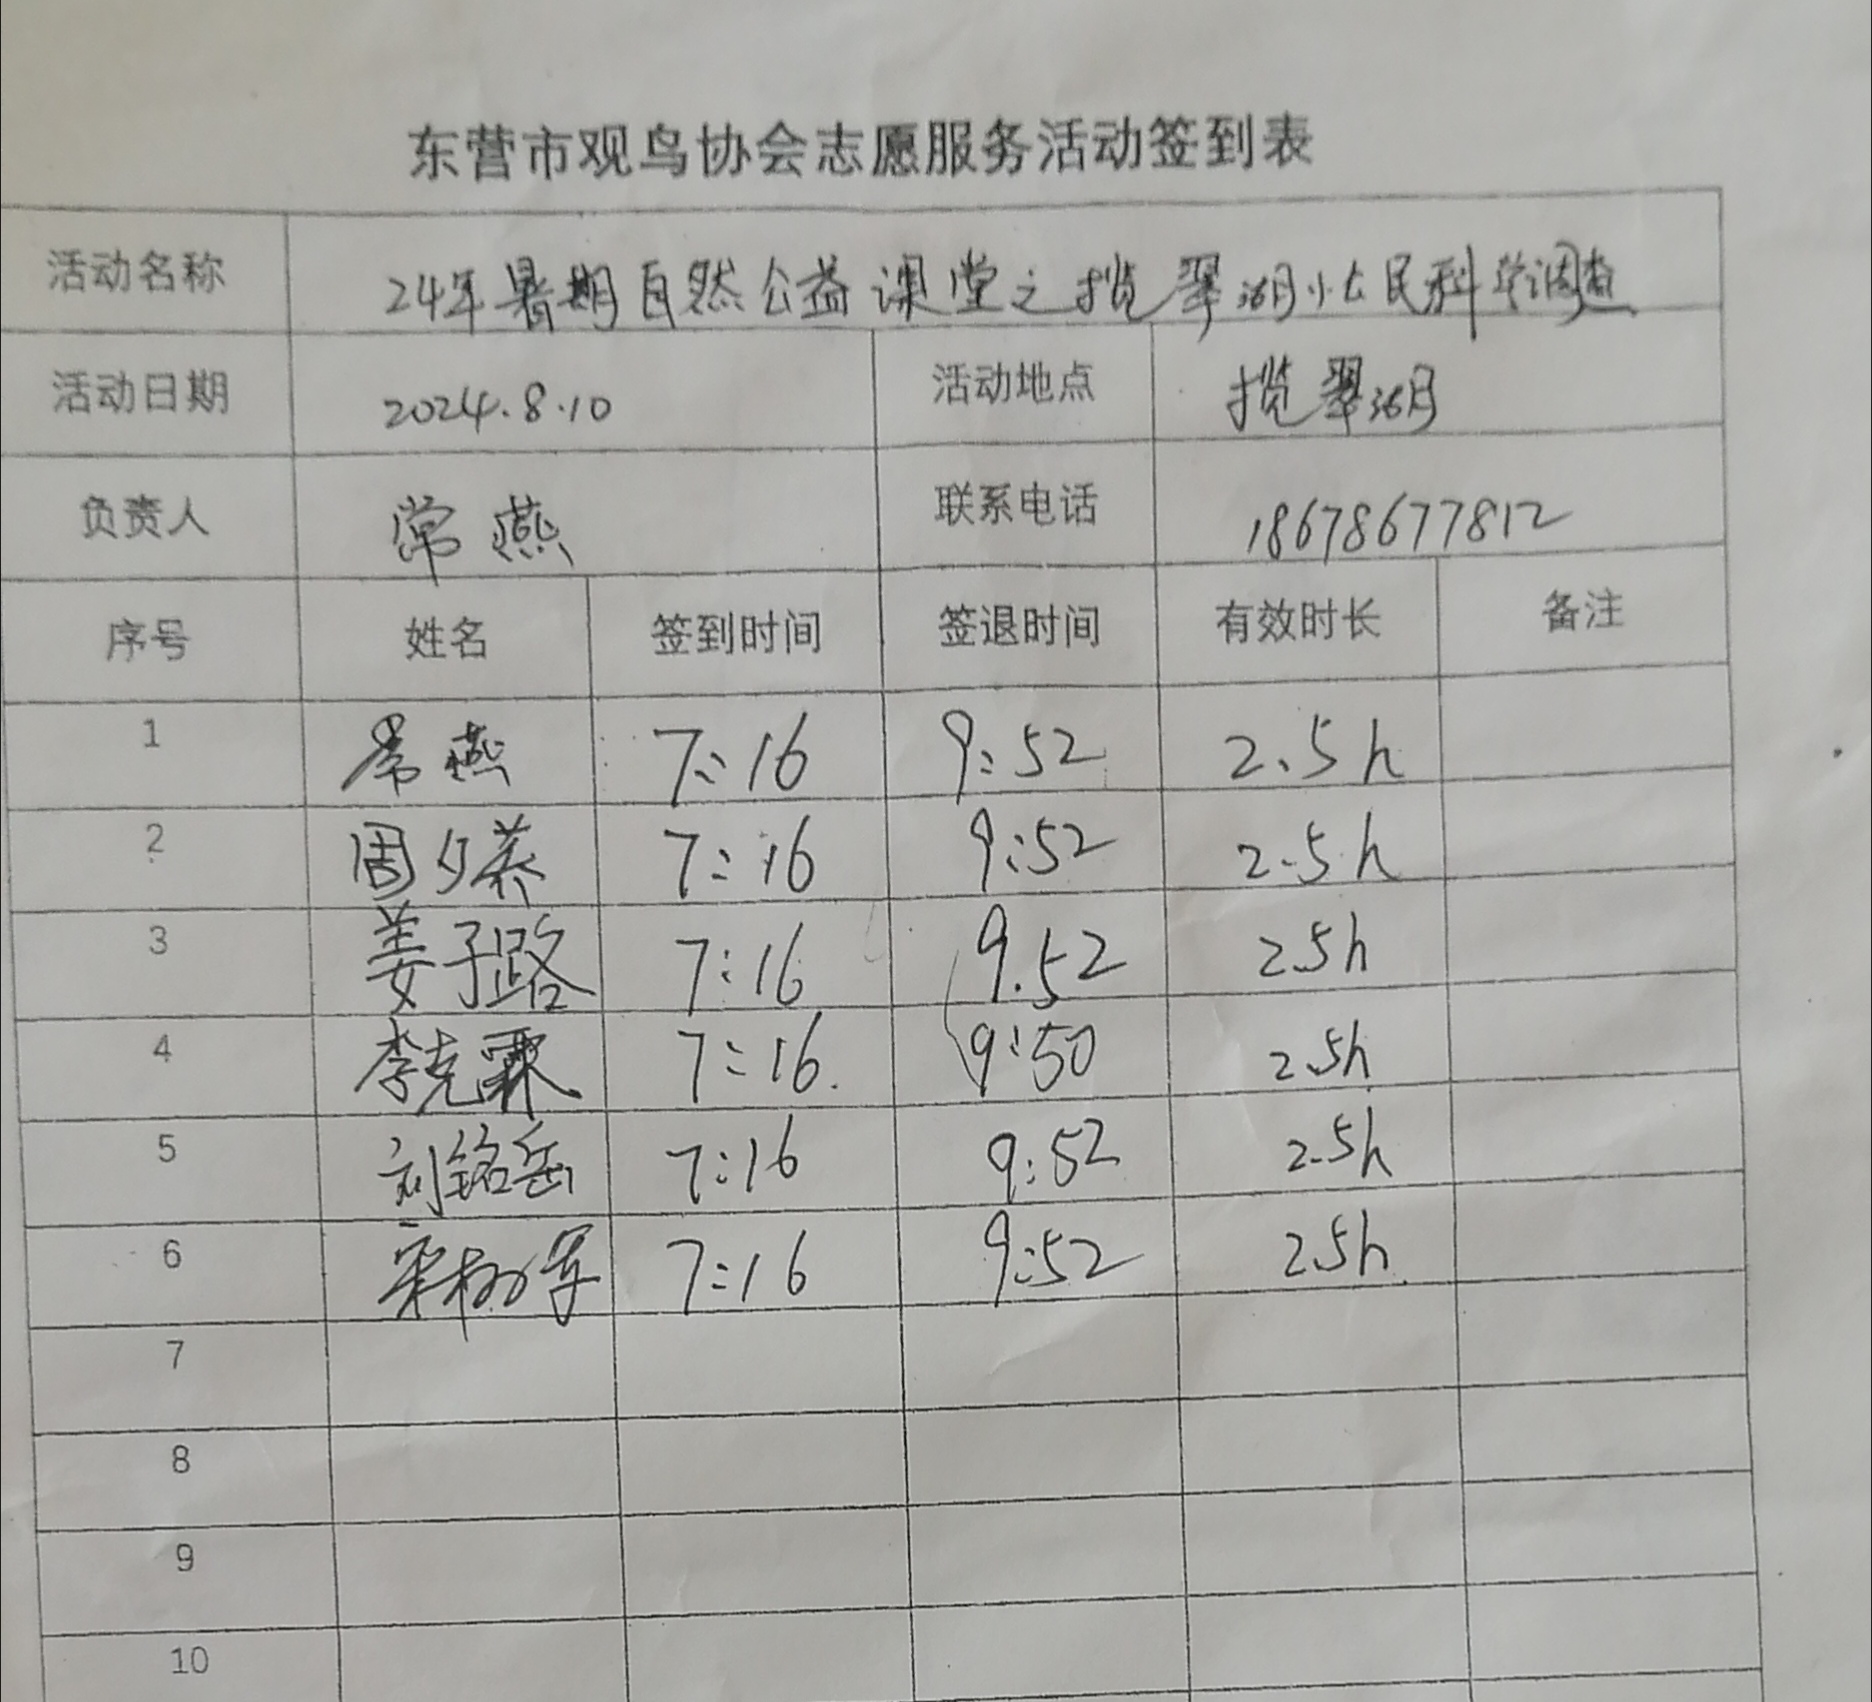 东营市观鸟协会志愿服务活动签到表
活动名称 24年暑期自然公益课堂之揽翠湖小公民科学调查
活动日期 2024.8.10 活动地点 揽翠湖
负责人 常燕 联系电话 18678677812
序号 姓名 签到时间 签退时间 有效时长 备注
1 常燕 7:16 9:52 2.5h
2 周夕 7:16 9:52 2.5h
3 姜子路 7:16 9.52 2.5h
4 李克霖 7:16. 9:50 2.5h
5 刘铭岳 7:16 9:52 2.5h
6 7:16 9:52 2.5h
7
8
9
10